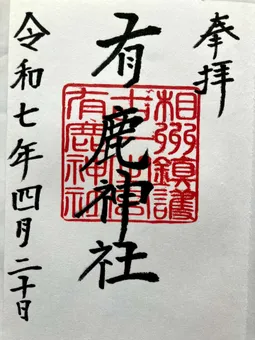 奉拝
有鹿神社
相州鎮護
有鹿神社
令和七年四月二十日